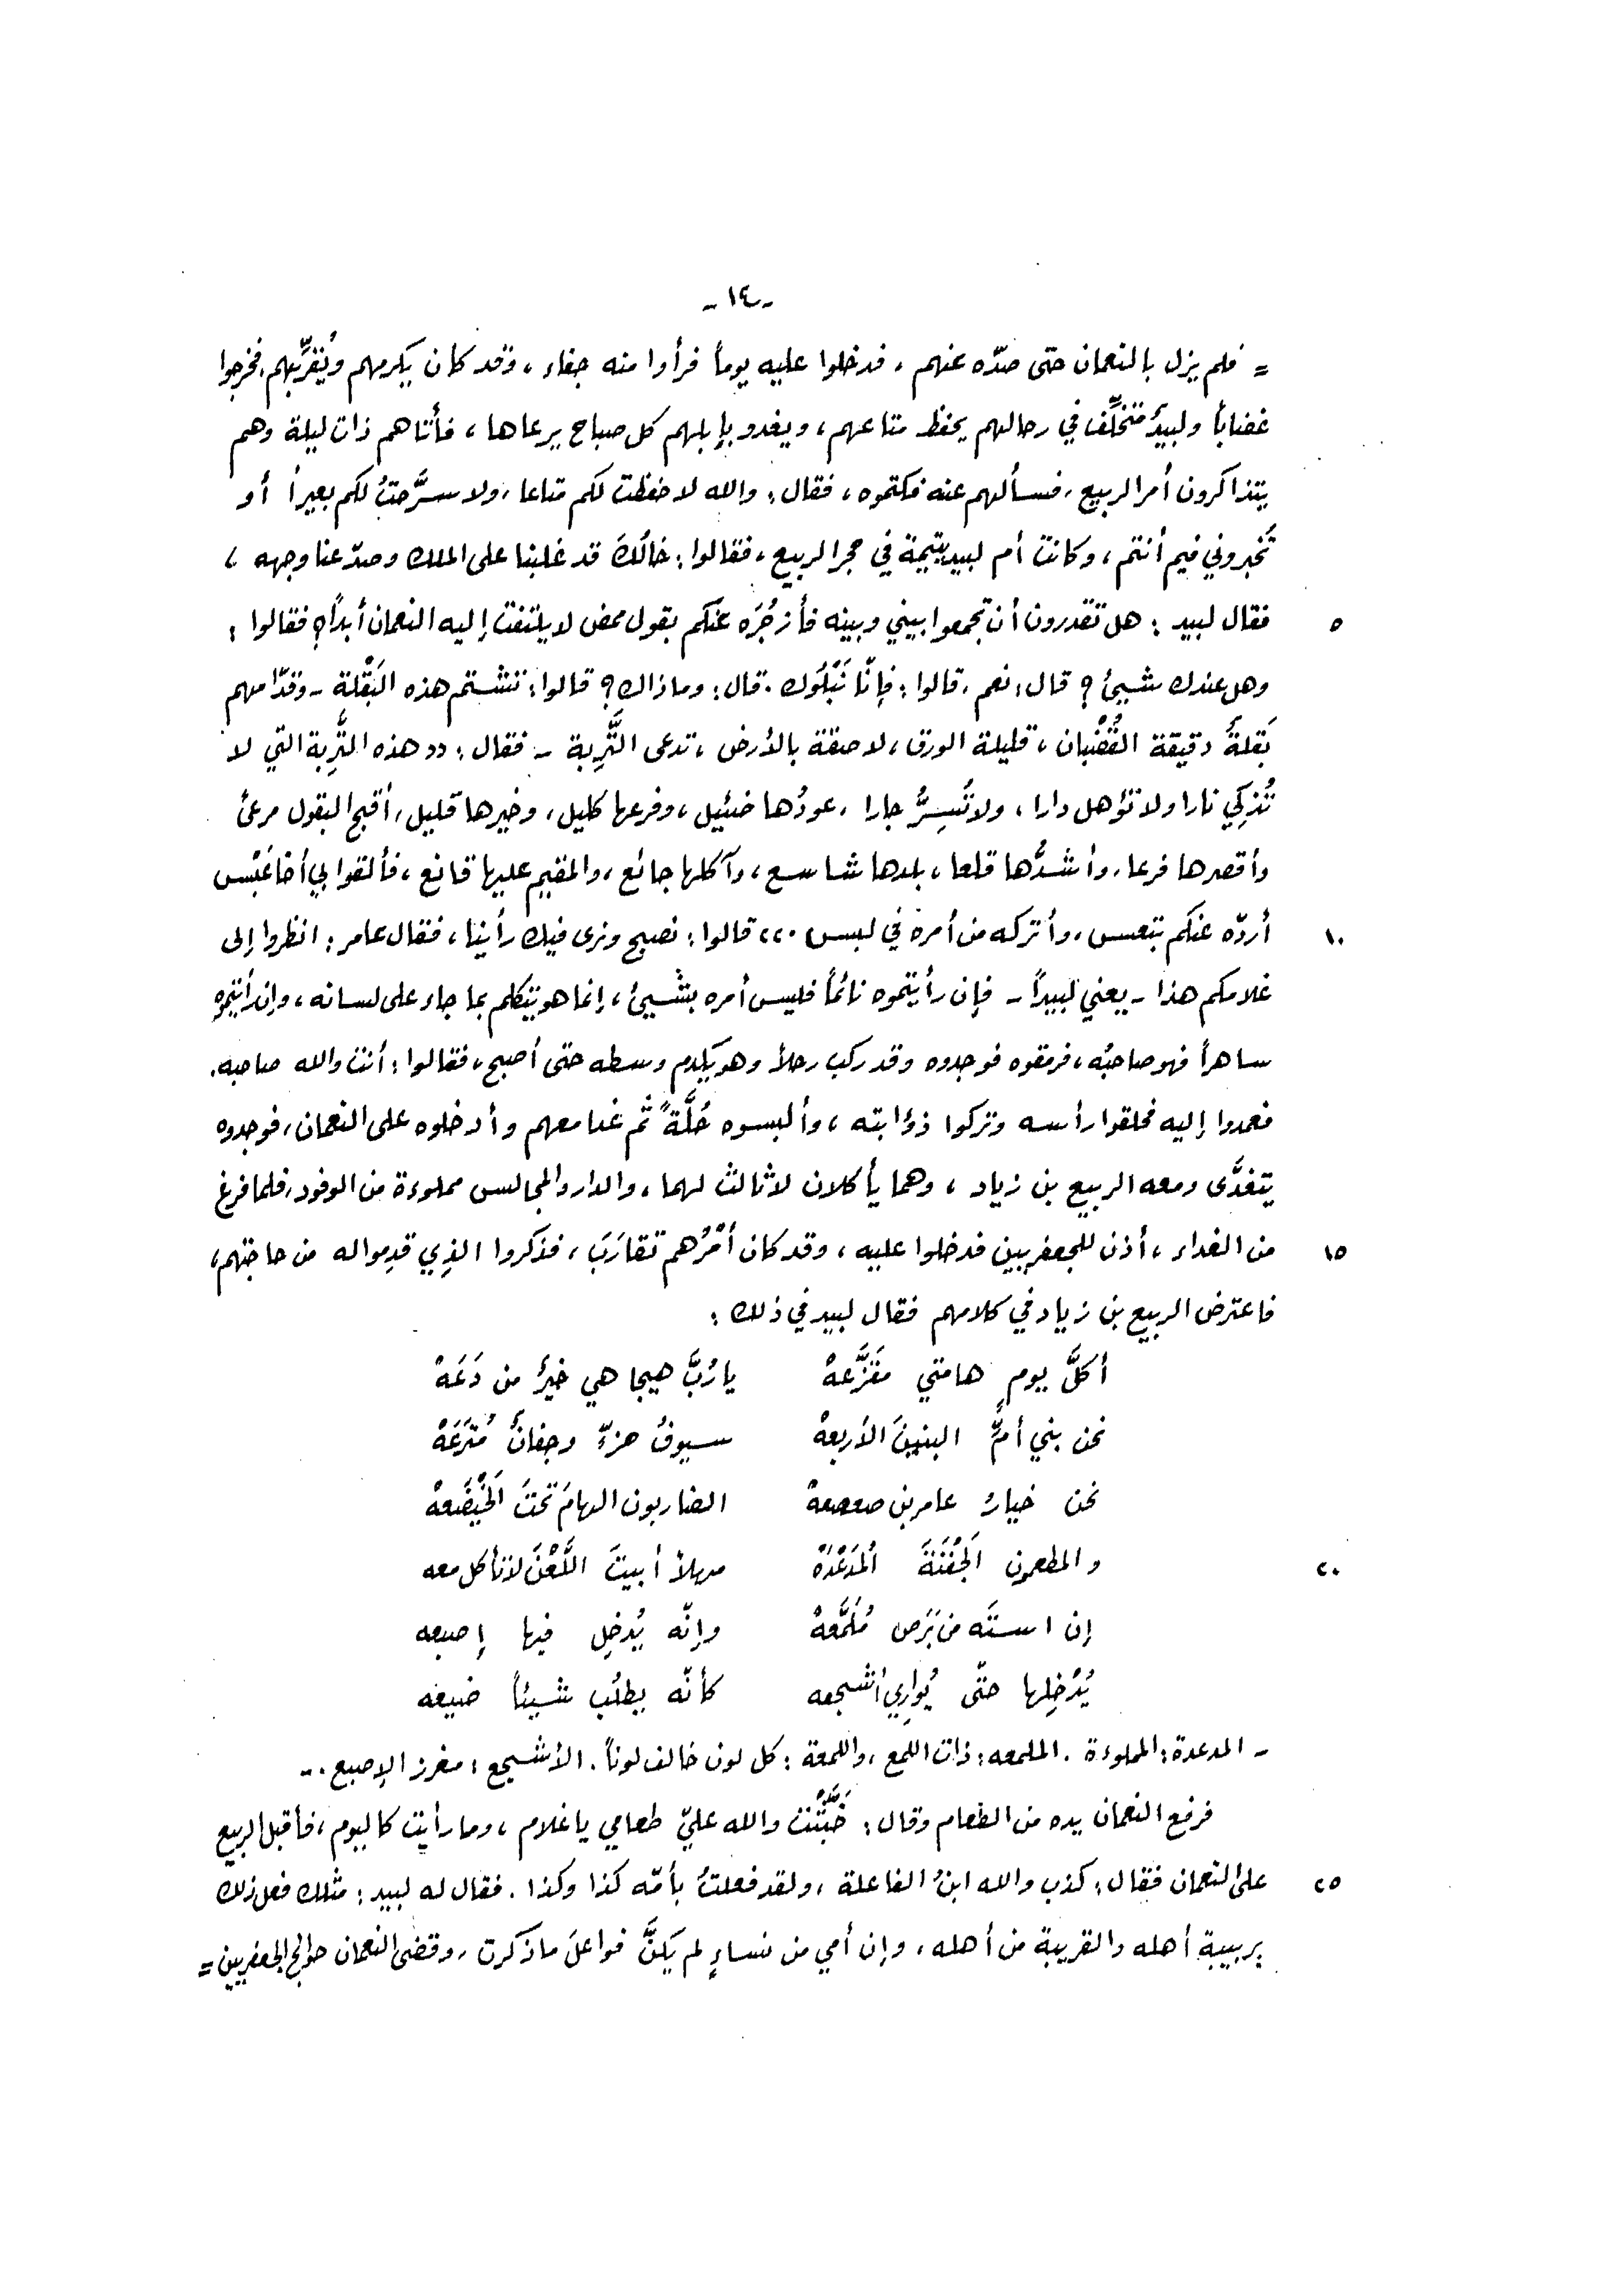 -١٤-
= فلم يزل بالنعمان حتى صدّه عنهم، فدخلوا عليه يوماً فرأوا منه جفاء، وقد كان يكرمهم ويُقَرِّبهم، فخرجوا
غضاباً ولبيدٌ متخلِّف في رحالهم يحفظ متاعهم، ويغدو بإبلهم كل صباح يرعاها، فأتاهم ذات ليلة وهم
يتذاكرون أمر الربيع، فسألهم عنه فكتموه، فقال: والله لا حفظت لكم متاعا، ولا سرَّحتُ لكم بعيراً أو
تُخبروني فيم أنتم، وكانت أم لبيد يتيمة في حجر الربيع، فقالوا: خالُكَ قد غلبنا على الملك وصدّ عنا وجهه،
٥ فقال لبيد: هل تقدرون أن تجمعوا بيني وبينه فأزجُرَه عنكم بقول ممض لا يلتفت إليه النعمان أبداً؟ فقالوا:
وهل عندك شيئ؟ قال: نعم، قالوا: فإنّا نَبْلُوك. قال: وما ذاك؟ قالوا: تشتم هذه البَقْلة - وقدّامهم
بَقلةٌ دقيقة القُضْبان، قليلة الورق، لاصقة بالأرض، تدعى التَّرِبة - فقال: «هذه التَّرِبة التي لا
تُذكِي نارا ولا تؤهل دارا، ولا تُسِرُّ جارا، عودُها ضئيل، وفرعها كليل، وخيرها قليل، أقبح البقول مرعىً
وأقصرها فرعا، وأشدُّها قلعا، بلدها شاسع، وآكلها جائع، والمقيم عليها قانع، فألقوا بي أخا عَبْس
١٠ أردّه عنكم بتعس، وأتركه من أمره في لبس.» قالوا: نصبح ونرى فيك رأينا، فقال عامر: انظروا إلى
غلامكم هذا - يعني لبيداً - فإن رأيتموه نائماً فليس أمره بشيئ، إنما هو يتكلم بما جاء على لسانه، وإن رأيتموه
ساهراً فهو صاحبُه، فرمقوه فوجدوه وقد ركب رحلاً وهو يَكدم وسطه حتى أصبح، فقالوا: أنت والله صاحبه.
فعمدوا إليه فحلقوا رأسه وتركوا ذؤابته، وألبسوه حُلَّةً ثم غدا معهم وأدخلوه على النعمان، فوجدوه
يتغدَّى ومعه الربيع بن زياد، وهما يأكلان لا ثالث لهما، والدار والمجالس مملوءة من الوفود، فلما فرغ
١٥ من الغداء، أذن للجعفريين فدخلوا عليه، وقد كان أمْرُهم تقارَبَ، فذكروا الذِي قدِموا له من حاجتهم،
فاعترض الربيع بن زياد في كلامهم فقال لبيد في ذلك:
أكلَّ يومٍ هامتي مقَزَّعهْ يا رُبَّ هيجا هي خيرٌ من دَعَهْ
نحن بني أمِّ البنينَ الأربعهْ سيوفُ هزٍّ وجفانٌ مُترَعَهْ
نحن خيارُ عامر بن صعصعهْ الضاربون الهامَ تحتَ الخَيْضَعهْ
٢٠ والمطعمون الجَفْنَةَ المُدَعْدَةْ مهلاً أبيتَ اللَّعْنَ لا تأكل معه
إن استَه من بَرَص مُلَمَّعهْ وإنّه يُدْخِل فيها إصبعه
يُدْخِلها حتّى يُوارِي أشجعه كأنّه يطلُب شيئاً ضيعه
- المدعدة: المملوءة. الملمعه: ذات اللمع، واللمعة: كل لون خالف لوناً. الأشجع: مغرز الإصبع.-
فرفع النعمان يده من الطعام وقال: خَبَّثْتَ والله عليّ طعامي يا غلام، وما رأيت كاليوم، فأقبل الربيع
٢٥ على النعمان فقال: كذب والله ابنُ الفاعلة، ولقد فعلتُ بأمّه كذا وكذا. فقال له لبيد: مثلك فعل ذلك
بربيبة أهله والقريبة من أهله، وإن أمي من نساءٍ لم يَكنَّ فواعلَ ما ذكرت، وقضى النعمان حوائج الجعفريين =